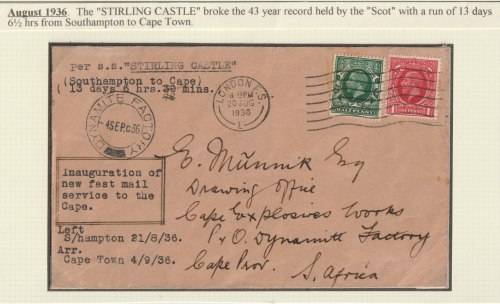 August 1936 The "STIRLING CASTLE" broke the 43 year record held by the "Scot" with a run of 13 days
6½ hrs from Southampton to Cape Town.
per s.s."STIRLING CASTLE"
(Southampton to Cape)
(13 days 6 hrs.30 mins.
DYNAMITE FACTORY
4 SEP 36
LONDON F.S.
20 AUG
1936
HALFPENNY
1
Inauguration of
new fast mail
service to the
Cape.
Left
S/hampton 21/8/36.
Arr.
Cape Town 4/9/36.
E. Munnik Esq
Drawing Office
Cape Explosives Works
P.O. Dynamite Factory
Cape Prov.
S. Africa